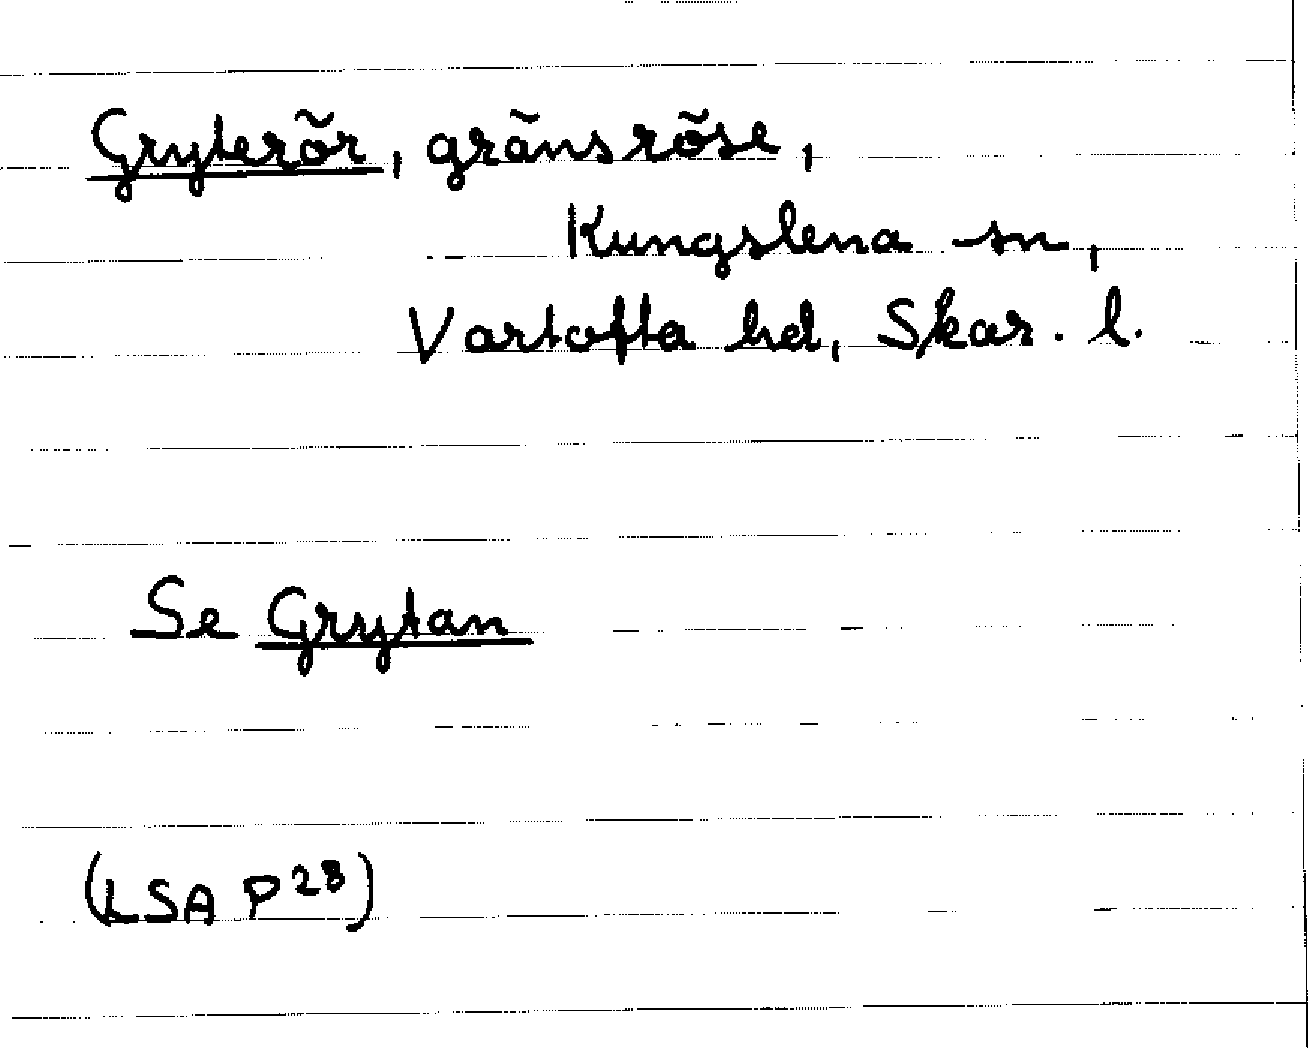 Gryterör, gränsröse,
Kungslena sn,
Vartofta hd, Skar. l.
Se Grytan
(LSA P²⁸)